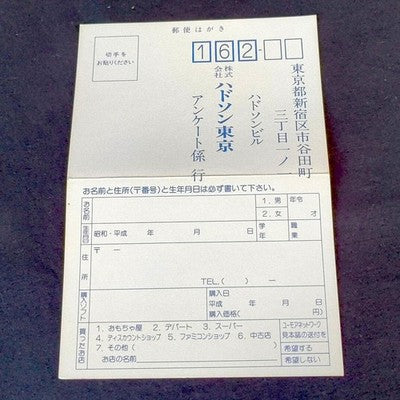 郵便はがき
切手を
お貼りください
162-
東京都新宿区市谷田町
三丁目一ノ一
ハドソンビル
株式会社 ハドソン東京
アンケート係 行
お名前と住所(〒番号)と生年月日は必ず書いて下さい。
お名前
1. 男
2. 女
年令
才
生年月日
昭和・平成 年 月 日
学年
職業
住所
〒 ー
TEL. ( ) ー
購入ソフト
購入日
平成 年 月 日
購入価格( 円)
買ったお店
1. おもちゃ屋 2. デパート 3. スーパー
4. ディスカウントショップ 5. ファミコンショップ 6. 中古店
7. その他( )
お店の名前( )
ユーモアネットワーク
見本誌の送付を
希望する
希望しない